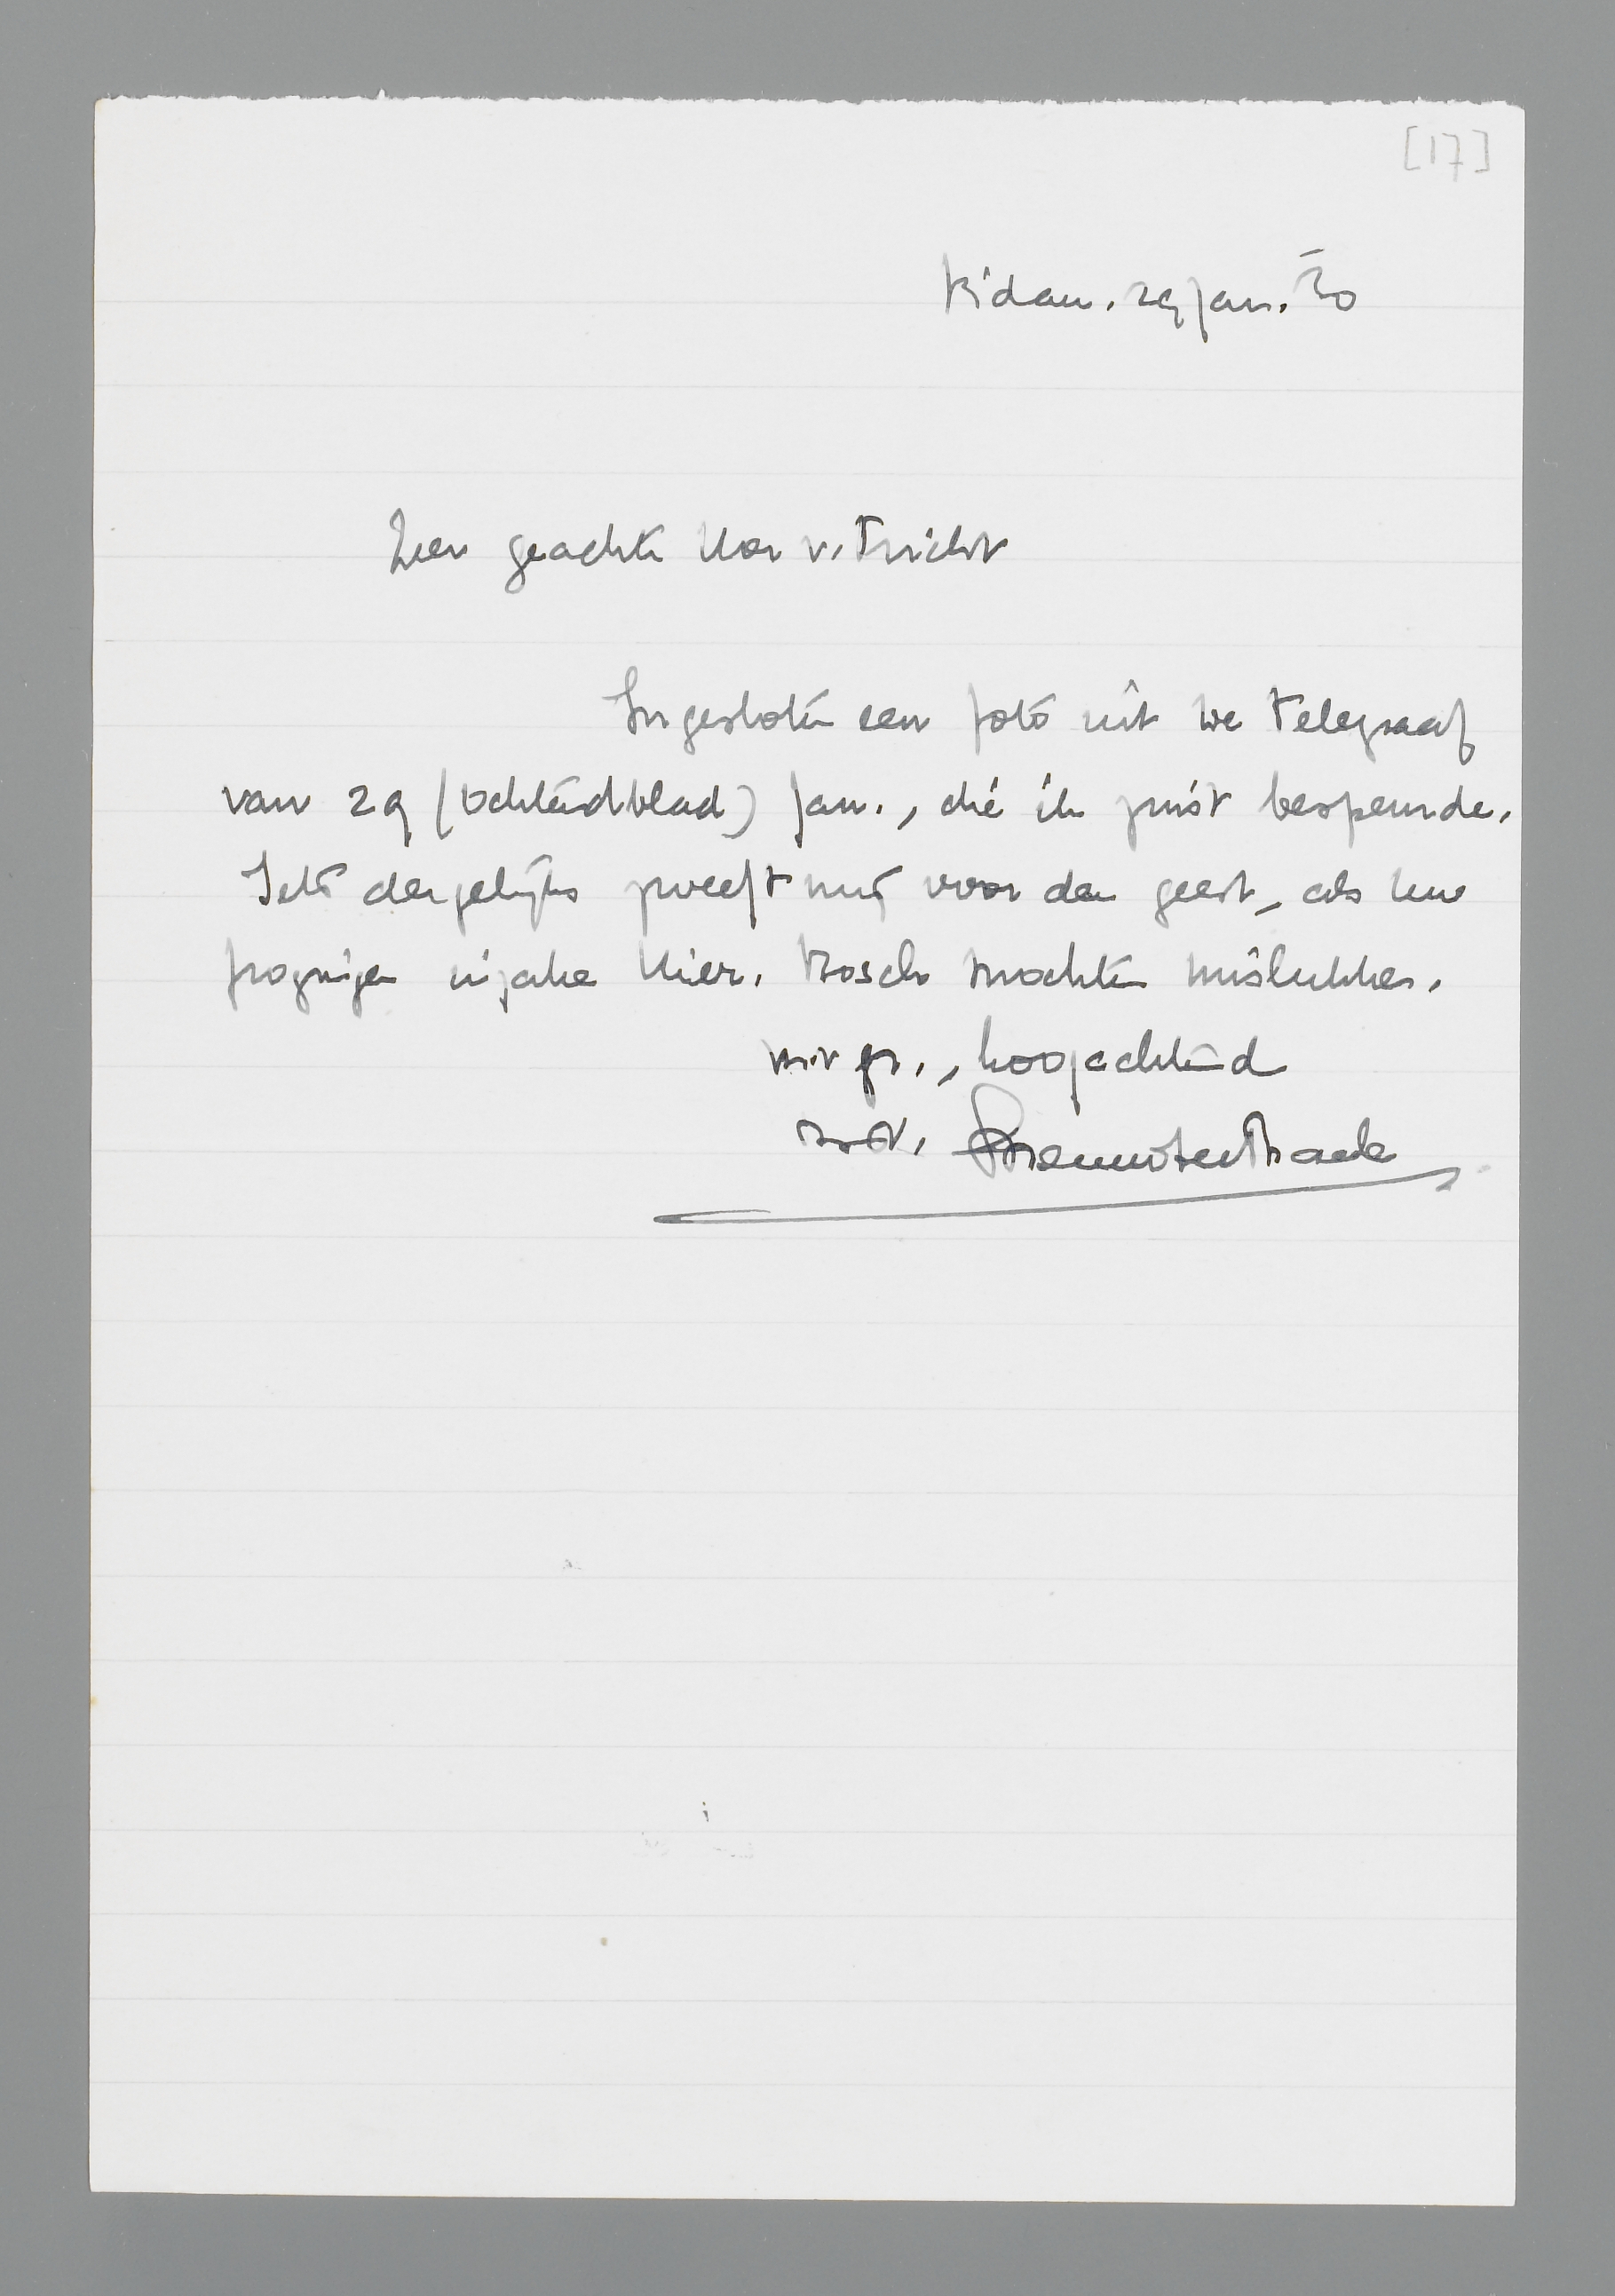 [17]
R'dam. 29 jan. 30
Zeer geachte Heer v. Tricht
Ingesloten een foto uit de Telegraaf
van 29 (Ochtendblad) jan., die ik juist bespeurde.
Iets dergelijks zweeft mij voor den geest, als uw
pogingen inzake Hier. Bosch mochten mislukken.
m. vr. gr., hoogachtend